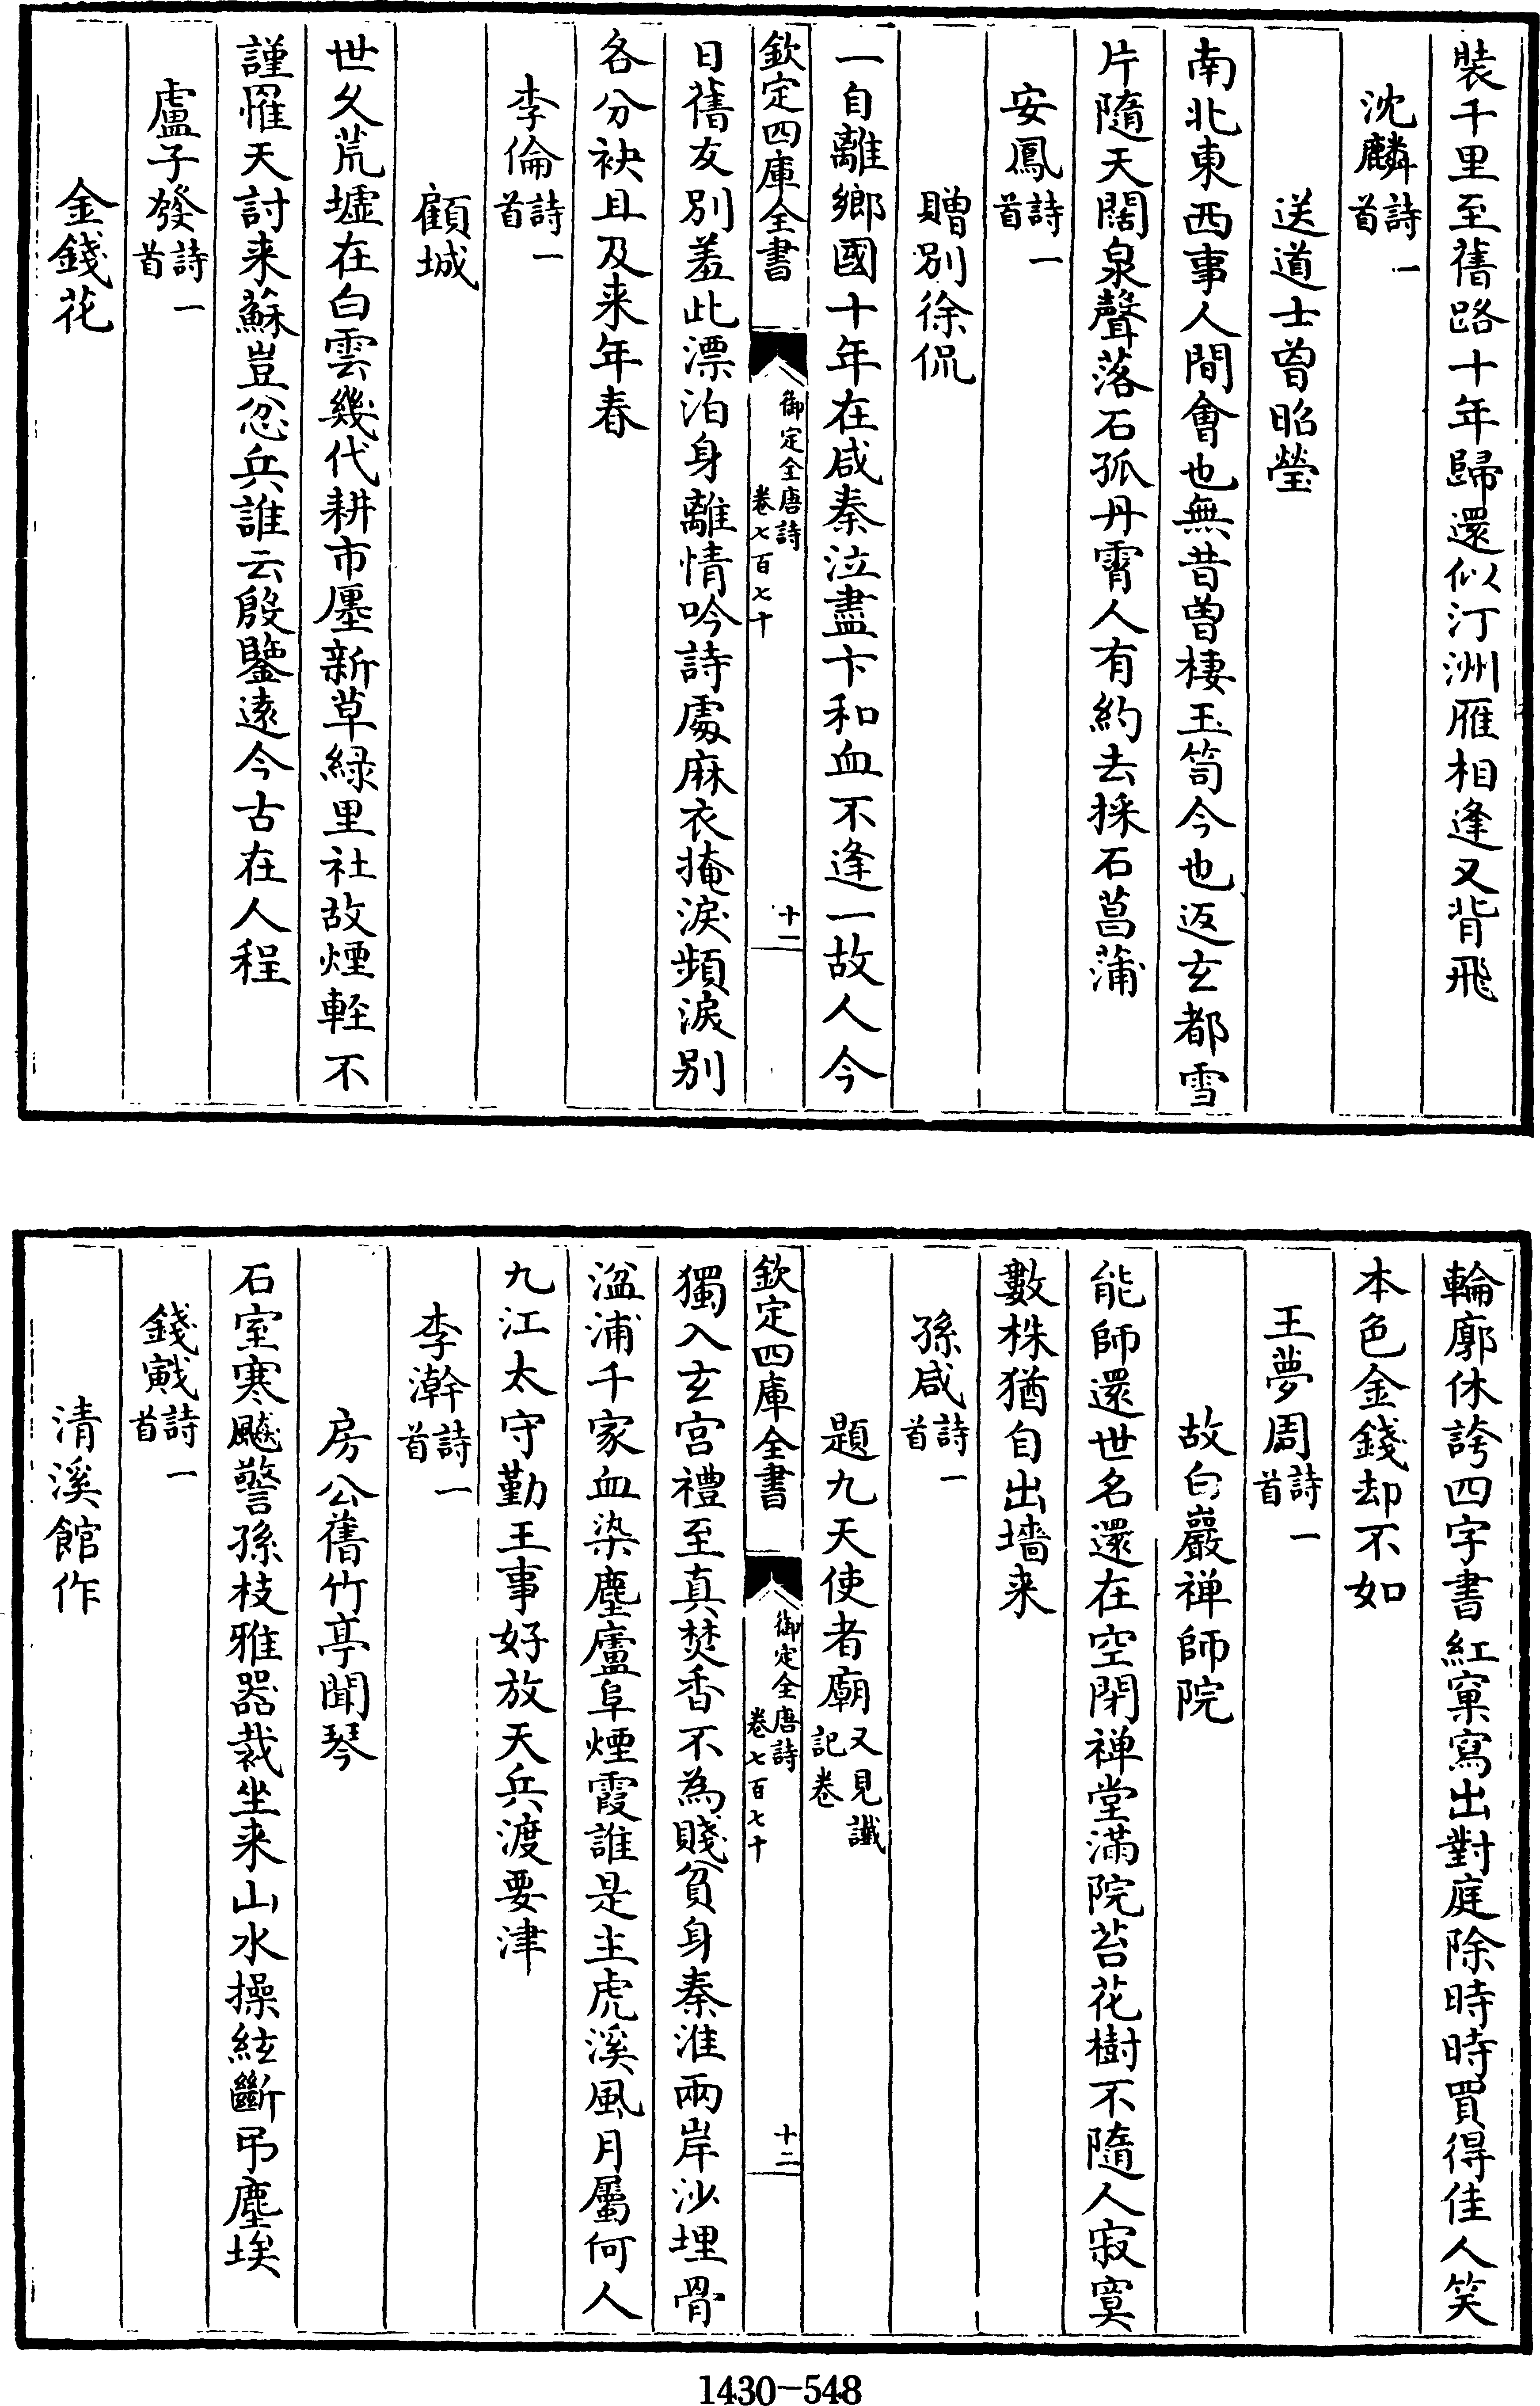 裝千里至舊路十年歸還似汀洲雁相逢又背飛
沈麟詩一首
送道士曾昭瑩
南北東西事人間會也無昔曾棲玉笥今也返玄都雪
片隨天闊泉聲落石孤丹霄人有約去採石菖蒲
安鳳詩一首
贈別徐侃
一自離鄉國十年在咸秦泣盡卞和血不逢一故人今
欽定四庫全書
御定全唐詩
卷七百七十
十一
日舊友別羞此漂泊身離情吟詩處麻衣掩淚頻淚別
各分袂且及来年春
李倫詩一首
顧城
世久荒墟在白雲幾代耕市廛新草綠里社故煙輕不
謹罹天討来蘇豈忿兵誰云殷鑒遠今古在人程
盧子發詩一首
金錢花
輪廓休誇四字書紅窠寫出對庭除時時買得佳人笑
本色金錢却不如
王夢周詩一首
故白巖禅師院
能師還世名還在空閉禅堂滿院苔花樹不隨人寂寞
數株猶自出墻来
孫咸詩一首
題九天使者廟又見讖記卷
欽定四庫全書
御定全唐詩
卷七百七十
十二
獨入玄宮禮至真焚香不為賤貧身秦淮兩岸沙埋骨
湓浦千家血染塵廬阜煙霞誰是主虎溪風月屬何人
九江太守勤王事好放天兵渡要津
李瀚詩一首
房公舊竹亭聞琴
石室寒飈警孫枝雅器裁坐来山水操絃斷弔塵埃
錢戭詩一首
清溪館作
1430-548